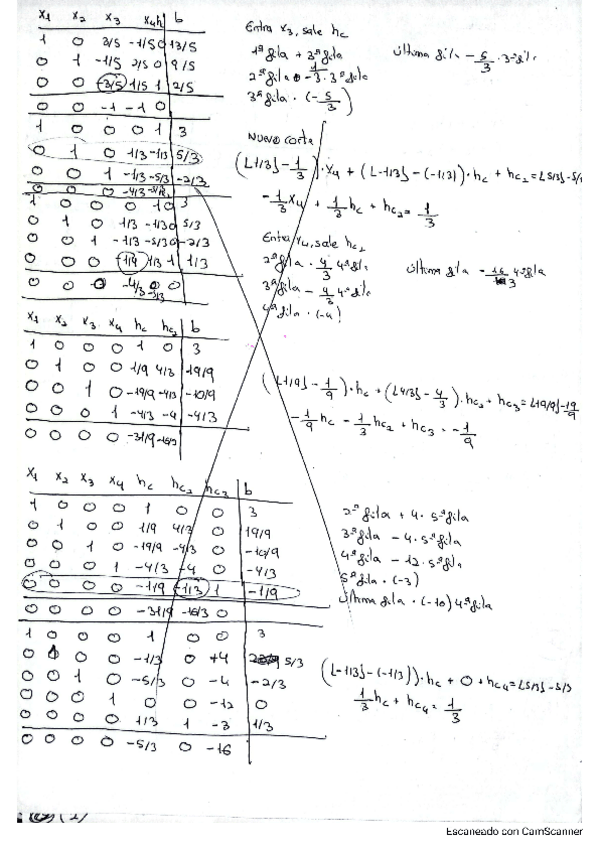 x1 x2 x3 x4 h b
1 0 3/5 -1/5 0 13/5
0 1 -1/5 2/5 0 9/5
0 0 -3/5 1/5 1 2/5
0 0 -1 -1 0
Entra x3, sale hc
1ª fila + 3ª fila
2ª fila - 1/3 · 3ª fila
3ª fila · (-5/3)
Última fila - 5/3 · 3ª fila
1 0 0 0 1 3
0 1 0 1/3 -1/3 5/3
0 0 1 -1/3 -5/3 -2/3
0 0 0 -4/3 -5/3
Nuevo corte
(⌊1/3⌋ - 1/3) · x4 + (⌊-1/3⌋ - (-1/3)) · hc + hc2 = ⌊5/3⌋ - 5/3
-1/3 x4 + 1/3 hc + hc2 = 1/3
1 0 0 0 1 0 3
0 1 0 1/3 -1/3 0 5/3
0 0 1 -1/3 -5/3 0 -2/3
0 0 0 -1/9 1/3 1 1/3
0 0 0 -4/3 -5/3 0
Entra x4, sale hc2
2ª fila · 4/3 4ª fila
3ª fila - 4/3 4ª fila
4ª fila · (-4)
Última fila - 16/3 4ª fila
x1 x2 x3 x4 hc hc2 b
1 0 0 0 1 0 3
0 1 0 0 1/9 4/3 19/9
0 0 1 0 -19/9 -4/3 -10/9
0 0 0 1 -4/3 -4 -4/3
0 0 0 0 -31/9 -16/3
(⌊1/9⌋ - 1/9) · hc + (⌊4/3⌋ - 4/3) · hc2 + hc3 = ⌊19/9⌋ - 19/9
-1/9 hc - 1/3 hc2 + hc3 = -1/9
x1 x2 x3 x4 hc hc2 hc3 b
1 0 0 0 1 0 0 3
0 1 0 0 1/9 4/3 0 19/9
0 0 1 0 -19/9 -4/3 0 -10/9
0 0 0 1 -4/3 -4 0 -4/3
0 0 0 0 -1/9 -1/3 1 -1/9
0 0 0 0 -31/9 -16/3 0
2ª fila + 4 · 5ª fila
3ª fila - 4 · 5ª fila
4ª fila - 12 · 5ª fila
5ª fila · (-3)
Última fila · (-10) 4ª fila
1 0 0 0 1 0 0 3
0 1 0 0 -1/3 0 +4 5/3
0 0 1 0 -5/3 0 -4 -2/3
0 0 0 1 0 0 -12 0
0 0 0 0 1/3 1 -3 1/3
0 0 0 0 -5/3 0 -16
(⌊-1/3⌋ - (-1/3)) · hc + 0 + hc4 = ⌊5/3⌋ - 5/3
1/3 hc + hc4 = 1/3
Escaneado con CamScanner